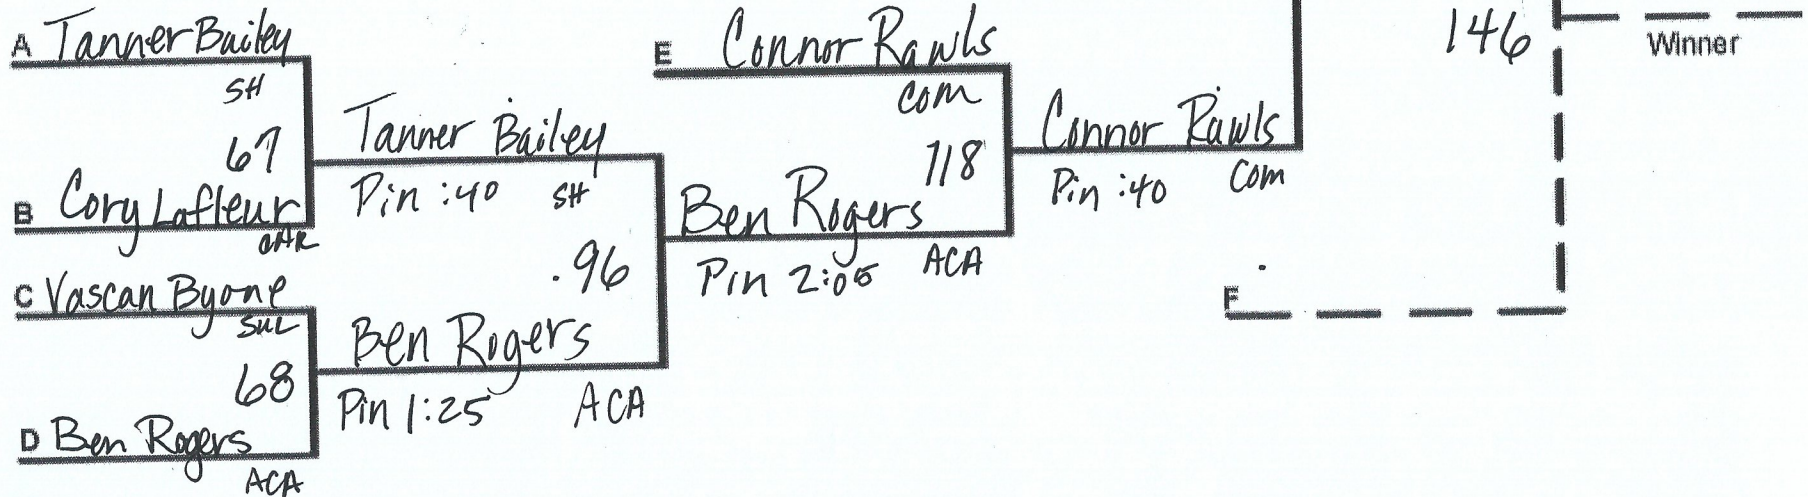 A Tanner Bailey
SH
67
B Cory Lafleur
CAR
C Vascan Byone
SUL
68
D Ben Rogers
ACA
Tanner Bailey
Pin :40 SH
.96
Ben Rogers
Pin 1:25 ACA
E Connor Rawls
Com
118
Ben Rogers
Pin 2:05 ACA
Connor Rawls
Pin :40 Com
146
Winner
F